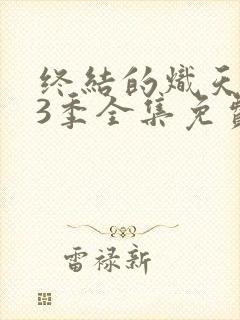 终结的炽天
3季全集免费
雷禄新